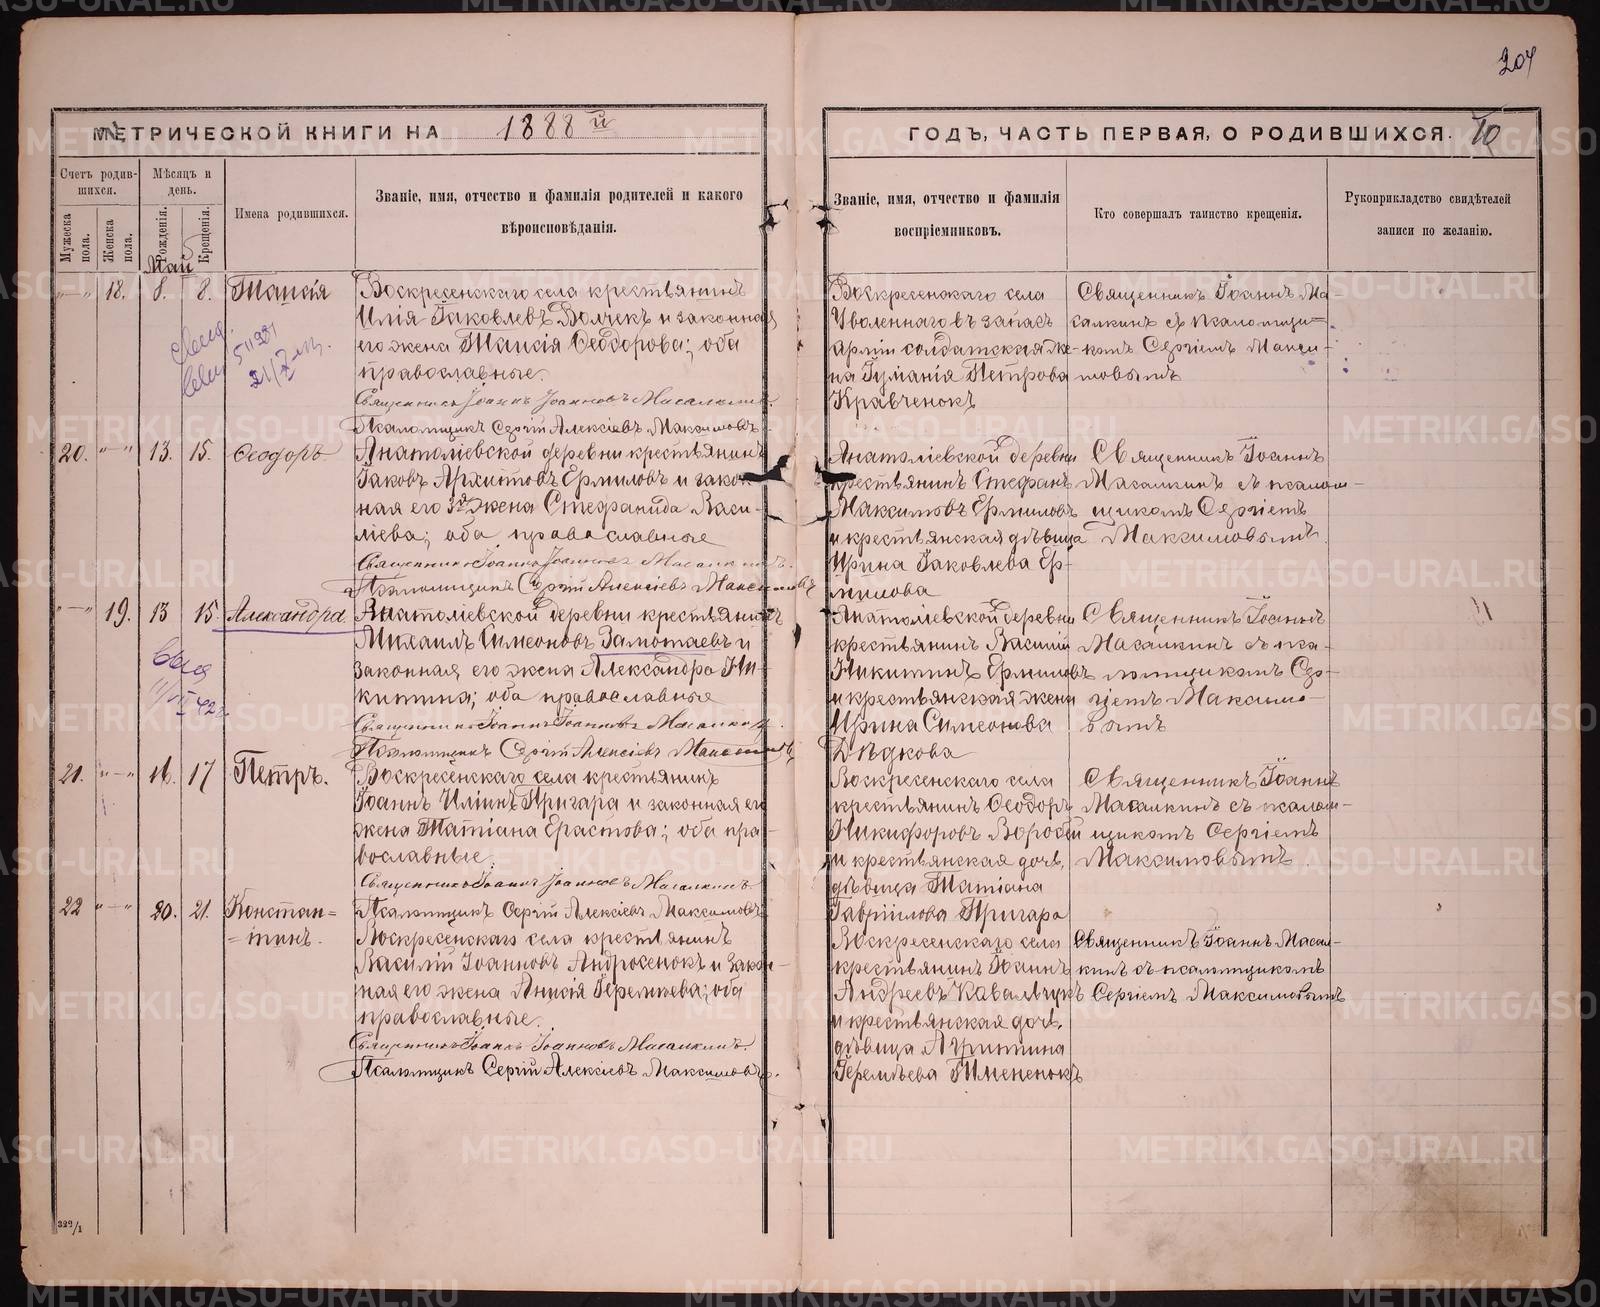 204
МЕТРИЧЕСКОЙ КНИГИ НА 1888й
ГОДЪ, ЧАСТЬ ПЕРВАЯ, О РОДИВШИХСЯ. 10
Счетъ родив-
шихся.
Мѣсяцъ и
день.
Мужеска
пола.
Женска
пола.
Рожденія.
Крещенія.
Имена родившихся.
Званіе, имя, отчество и фамилія родителей и какого
вѣроисповѣданія.
Званіе, имя, отчество и фамилія
воспріемниковъ.
Кто совершалъ таинство крещенія.
Рукоприкладство свидѣтелей
записи по желанію.
Май
18. 8. 8. Таисія
Воскресенскаго села крестьянинъ
Илія Іаковлевъ Волчекъ и законная
его жена Таисія Ѳеодорова; оба
православные.
Священникъ Іоаннъ Іоанновъ Масалкинъ.
Псаломщикъ Сергій Алексіевъ Максимовъ.
Воскресенскаго села
Уволеннаго въ запасъ
арміи солдатская же-
на Гуманія Петрова
Кравченокъ
Священникъ Іоаннъ Ма-
салкинъ съ псаломщи-
комъ Сергіемъ Макси-
мовымъ
20. 13. 15. Ѳеодоръ
Анатоліевской деревни крестьянинъ
Іаковъ Архиповъ Ермиловъ и закон-
ная его 3я жена Стефанида Васи-
ліева; оба православные
Священникъ Іоаннъ Іоанновъ Масалкинъ.
Псаломщикъ Сергій Алексіевъ Максимовъ
Анатоліевской деревни
крестьянинъ Стефанъ
Максимовъ Ермиловъ
и крестьянская дѣвица
Ирина Іаковлева Ер-
милова
Священникъ Іоаннъ
Масалкинъ съ псалом-
щикомъ Сергіемъ
Максимовымъ.
19. 13 15. Александра
Анатоліевской деревни крестьянинъ
Михаилъ Симеоновъ Замотаевъ и
законная его жена Александра Ни-
китина; оба православные
Священникъ Іоаннъ Іоанновъ Масалкинъ.
Псаломщикъ Сергій Алексіевъ Максимовъ
Анатоліевской деревни
крестьянинъ Василій
Никитинъ Ермиловъ
и крестьянская жена
Ирина Симеонова
Дѣдкова
Священникъ Іоаннъ
Масалкинъ съ пса-
ломщикомъ Сер-
гіемъ Максимо-
вымъ
21. 16. 17 Петръ.
Воскресенскаго села крестьянинъ
Іоаннъ Иліинъ Пригара и законная его
жена Татіана Ерастова; оба пра-
вославные.
Священникъ Іоаннъ Іоанновъ Масалкинъ
Псаломщикъ Сергій Алексіевъ Максимовъ
Воскресенскаго села
крестьянинъ Ѳеодоръ
Никифоровъ Воробей
и крестьянская дочь,
дѣвица Татіана
Гавріилова Пригара
Священникъ Іоаннъ
Масалкинъ съ псалом-
щикомъ Сергіемъ
Максимовымъ.
22 20. 21. Констан=
=тинъ.
Воскресенскаго села крестьянинъ
Василій Іоанновъ Андросенокъ и закон-
ная его жена Анисія Іеремѣева; оба
православные.
Священникъ Іоаннъ Іоанновъ Масалкинъ.
Псаломщикъ Сергій Алексіевъ Максимовъ.
Воскресенскаго села
крестьянинъ Іоаннъ
Андреевъ Кавальчукъ
и крестьянская дочь,
дѣвица Агрипина
Іеремѣева
Священникъ Іоаннъ Масал-
кинъ съ псаломщикомъ
Сергіемъ Максимовымъ
329/1
METRIKI.GASO-URAL.RU